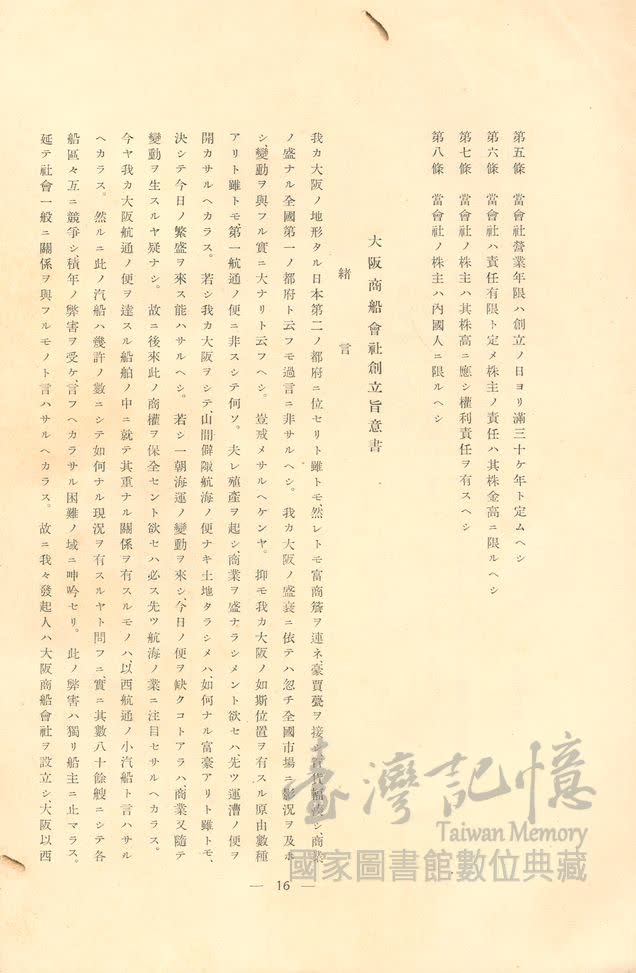 第五條　當會社營業年限ハ創立ノ日ヨリ滿三十ケ年ト定ムヘシ
第六條　當會社ハ責任有限ト定メ株主ノ責任ハ其株金高ニ限ルヘシ
第七條　當會社ノ株主ハ其株高ニ應シ權利責任ヲ有スヘシ
第八條　當會社ノ株主ハ內國人ニ限ルヘシ
大阪商船會社創立旨意書
緒言
我カ大阪ノ地形タル日本第二ノ都府ニ位セリト雖トモ、然レトモ富商簷ヲ連ネ、豪賈甍ヲ接シ、貨幅湊シ、商業
ノ盛ナル全國第一ノ都府ト云フモ過言ニ非サルヘシ。我カ大阪ノ盛衰ニ依テハ忽チ全國市場ニ影況ヲ及ホ
シ、變動ヲ與フル實ニ大ナリト云フヘシ。豈戒メサルヘケンヤ。抑モ我カ大阪ノ如斯位置ヲ有スル原由數種
アリト雖トモ第一航通ノ便ニ非スシテ何ソ。夫レ殖產ヲ起シ、商業ヲ盛ナラシメント欲セハ、先ツ運漕ノ便ヲ
開カサルヘカラス。若シ我カ大阪ヲシテ、山間僻陬航海ノ便ナキ土地タラシメハ、如何ナル富豪アリト雖トモ、
決シテ今日ノ繁盛ヲ來ス能ハサルヘシ。若シ一朝海運ノ變動ヲ來シ、今日ノ便ヲ缺クコトアラハ、商業又隨テ
變動ヲ生スルヤ疑ナシ。故ニ後來此ノ商權ヲ保全セント欲セハ必ス先ツ航海ノ業ニ注目セサルヘカラス。
今ヤ我カ大阪航通ノ便ヲ達スル船舶ノ中ニ就テ其重ナル關係ヲ有スルモノハ、以西航通ノ小汽船ト言ハサル
ヘカラス。然ルニ此ノ汽船ハ幾許ノ數ニシテ如何ナル現況ヲ有スルヤト問フニ、實ニ其數八十餘艘ニシテ各
船區々互ニ競爭シ、積年ノ弊害ヲ受ケ、言フヘカラサル困難ノ域ニ呻吟セリ。此ノ弊害ハ獨リ船主ニ止マラス。
延テ社會一般ニ關係ヲ與フルモノト言ハサルヘカラス。故ニ我々發起人ハ大阪商船會社ヲ設立シ、大阪以西
— 16 —
臺灣記憶
Taiwan Memory
國家圖書館數位典藏